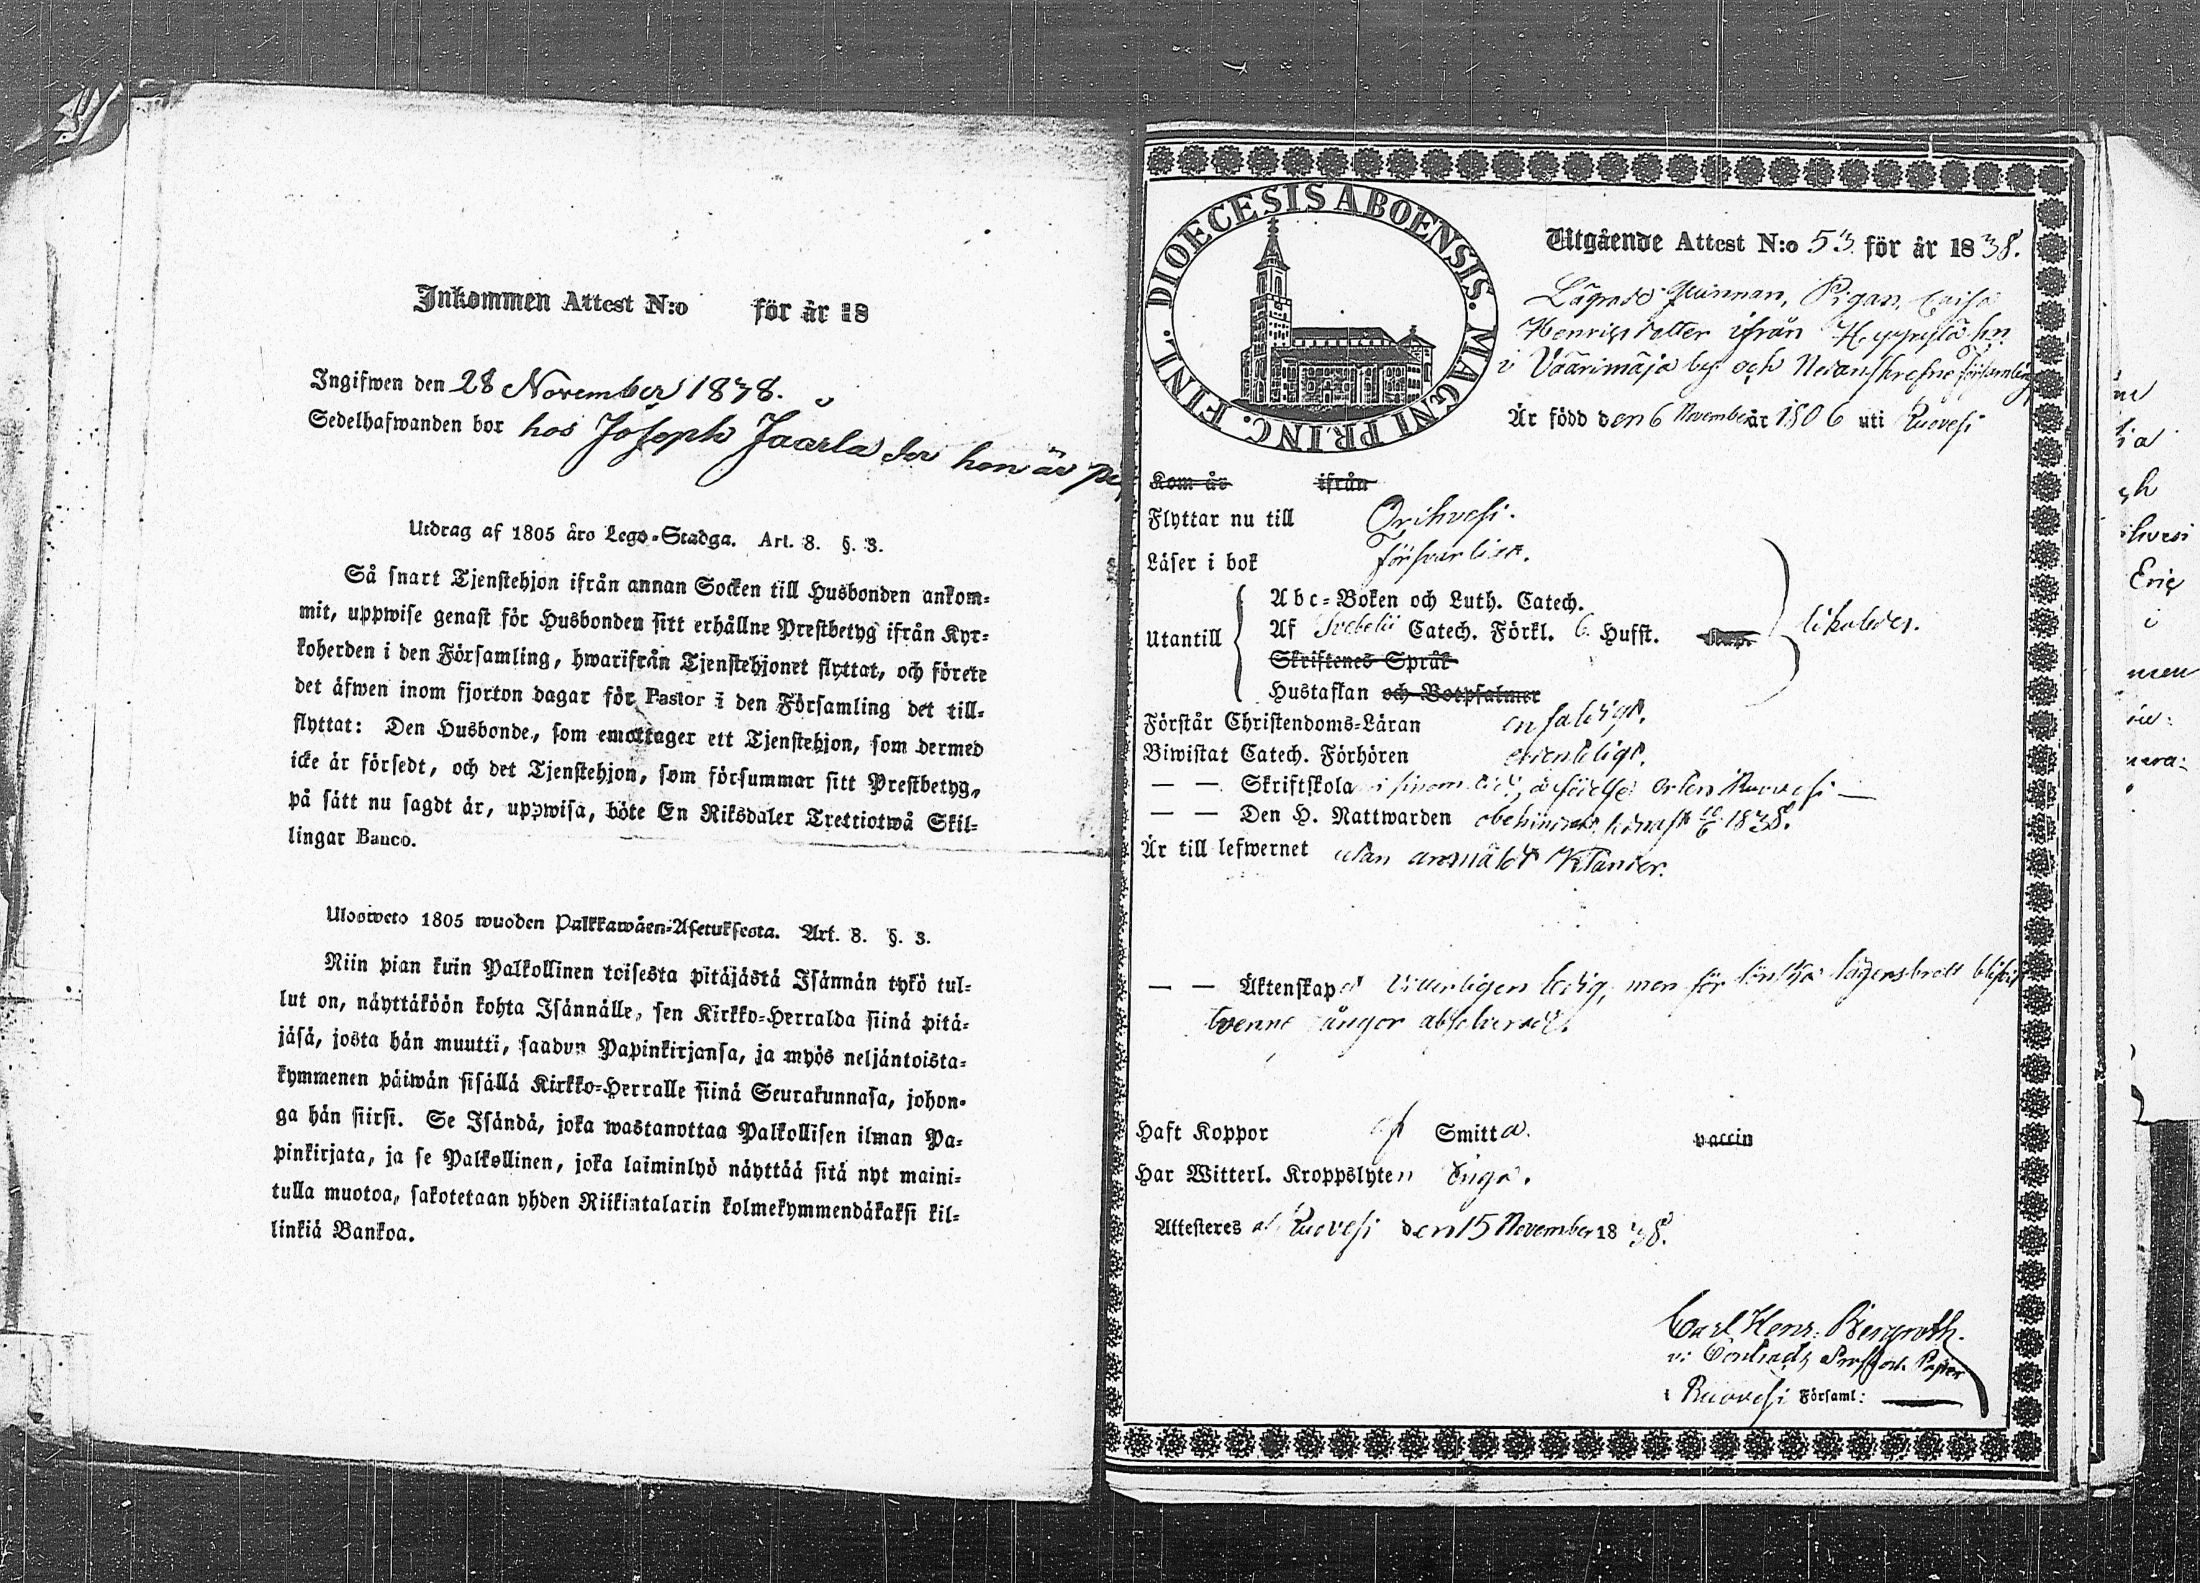 Inkommen Attest N:o för år 18
Ingifwen den 28 November 1838.
Sedelhafwanden bor hos Joseph Jaarla der hon är
Utdrag af 1805 års Lego-Stadga. Art. 8. §. 3.
Så snart Tjenstehjon ifrån annan Socken till Husbonden ankom-
mit, uppwise genast för Husbonden sitt erhållne Prestbetyg ifrån Kyr-
koherden i den Församling, hwarifrån Tjenstehjonet flyttat, och förete
det äfwen inom fjorton dagar för Pastor i den Församling det till-
flyttat: Den Husbonde, som emottager ett Tjenstehjon, som dermed
icke är försedt, och det Tjenstehjon, som försummar sitt Prestbetyg,
på sätt nu sagdt är, uppwisa, böte En Riksdaler Trettiotwå Skil-
lingar Banco.
Ulosweto 1805 wuoden Palkkawäen-Asetuksesta. Art. 8. §. 3.
Niin pian kuin Palkollinen toisesta pitäjästä Isännän tykö tul-
lut on, näyttäköön kohta Isännälle, sen Kirkko-Herralda siinä pitä-
jäsä, josta hän muutti, saadun Papinkirjansa, ja myös neljäntoista-
kymmenen päiwän sisällä Kirkko-Herralle siinä Seurakunnasa, johon-
ga hän siirsi. Se Isändä, joka wastanottaa Palkollisen ilman Pa-
pinkirjata, ja se Palkollinen, joka laiminlyö näyttää sitä nyt maini-
tulla muotoa, sakotetaan yhden Riikintalarin kolmekymmendäkaksi kil-
linkiä Bankoa.
DIOECESIS ABOENSIS. MAGNI PRINC. FINL.
Utgående Attest N:o 53 för år 1838.
Lägrade Qwinnan, Pigan, Caisa
Henrichsdotter ifrån
i Väärimäja by och Nedanskrefne Församling
Är född den 6 November år 1806 uti Ruovesi
Kom år ifrån
Flyttar nu till Orihvesi.
Läser i bok Försvarligt.
Abc-Boken och Luth. Catech.
Utantill Af Svebelii Catech. Förkl. 6. Hufst. likaledes.
Skriftenes Språk
Hustaflan och Botpsalmer
Förstår Christendoms-Läran enfaldigt.
Biwistat Catech. Förhören ordentligt.
— — Skriftskola i sinom tid, å födelse orten Ruovesi —
— — Den H. Nattwarden obehindrad, senast 1838.
Är till lefwernet utan anmäldt klander.
— — Äktenskapet Witterligen ledig, men för lönska lägersbrott blifvit
tvenne gånger absolverad.
Haft Koppor af Smitta. vaccin
Har Witterl. Kroppslyten inga.
Attesteres af Ruovesi den 15 November 1838.
Carl Henr. Bergroth.
v: Contracts Prost och Pastor
i Ruovesi Församl: